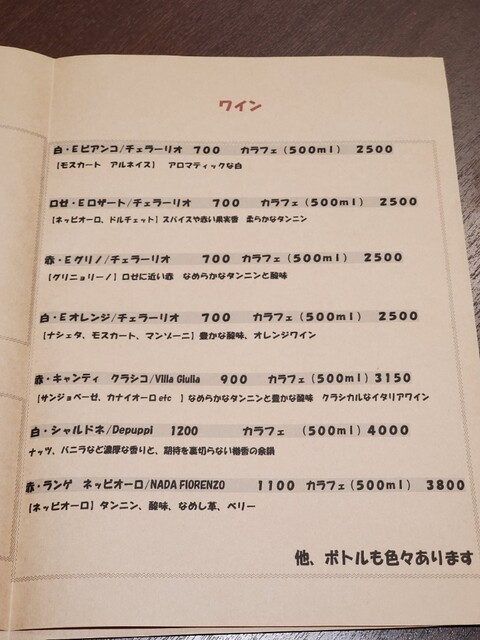 ワイン
白・Eビアンコ/チェラーリオ 700 カラフェ(500ml) 2500
【モスカート アルネイス】 アロマティックな白
ロゼ・Eロザート/チェラーリオ 700 カラフェ(500ml) 2500
【ネッビオーロ、ドルチェット】スパイスや赤い果実香 柔らかなタンニン
赤・Eグリノ/チェラーリオ 700 カラフェ(500ml) 2500
【グリニョリーノ】ロゼに近い赤 なめらかなタンニンと酸味
白・Eオレンジ/チェラーリオ 700 カラフェ(500ml) 2500
【ナシェタ、モスカート、マンゾーニ】豊かな酸味、オレンジワイン
赤・キャンティ クラシコ/Villa Giulia 900 カラフェ(500ml) 3150
【サンジョベーゼ、カナイオーロetc 】なめらかなタンニンと豊かな酸味 クラシカルなイタリアワイン
白・シャルドネ/Depuppi 1200 カラフェ (500ml) 4000
ナッツ、バニラなど濃厚な香りと、期待を裏切らない樽香の余韻
赤・ランゲ ネッビオーロ/NADA FIORENZO 1100 カラフェ(500ml) 3800
【ネッビオーロ】タンニン、酸味、なめし革、ベリー
他、ボトルも色々あります